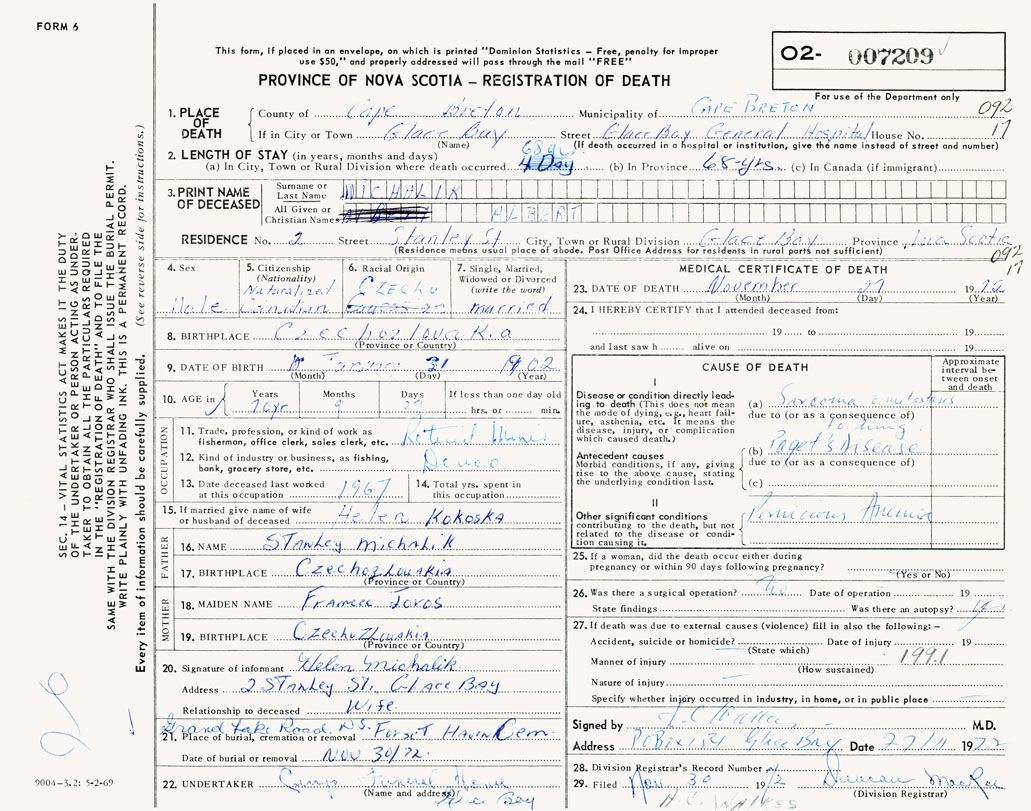 FORM 6
This form, if placed in an envelope, on which is printed "Dominion Statistics – Free, penalty for improper
use $50," and properly addressed will pass through the mail "FREE"
PROVINCE OF NOVA SCOTIA – REGISTRATION OF DEATH
02- 007209
For use of the Department only
092
17
1. PLACE OF DEATH
County of Cape Breton Municipality of CAPE BRETON
If in City or Town Glace Bay Street Glace Bay General Hospital House No.
(Name) (If death occurred in a hospital or institution, give the name instead of street and number)
2. LENGTH OF STAY (in years, months and days)
68 yrs
(a) In City, Town or Rural Division where death occurred 4 Day (b) In Province 68-yrs. (c) In Canada (if immigrant)
3. PRINT NAME OF DECEASED
Surname or Last Name MICHALIK
All Given or Christian Names ALBERT
RESIDENCE No. 2 Street Stanley St. City, Town or Rural Division Glace Bay Province Nova Scotia
(Residence means usual place of abode. Post Office Address for residents in rural parts not sufficient)
092
17
4. Sex
Male
5. Citizenship
(Nationality)
Naturalized
Canadian
6. Racial Origin
CZECHO
7. Single, Married,
Widowed or Divorced
(write the word)
married
8. BIRTHPLACE Czechoslovakia
(Province or Country)
9. DATE OF BIRTH January 31 1902
(Month) (Day) (Year)
10. AGE in
Years Months Days If less than one day old
70 yr 9 27 hrs. or min.
OCCUPATION
11. Trade, profession, or kind of work as
fisherman, office clerk, sales clerk, etc. Retired Miner
12. Kind of industry or business, as fishing,
bank, grocery store, etc. Devco
13. Date deceased last worked
at this occupation 1967
14. Total yrs. spent in
this occupation
15. If married give name of wife
or husband of deceased Helen KOKOSKA
FATHER
16. NAME Stanley Michalik
17. BIRTHPLACE Czechozlovakia
(Province or Country)
MOTHER
18. MAIDEN NAME Frances
19. BIRTHPLACE Czechozlovakia
(Province or Country)
20. Signature of informant Helen Michalik
Address 2 Stanley St. Glace Bay
Relationship to deceased Wife
Grand Lake Road, N.S.
21. Place of burial, cremation or removal Forest Haven Cem.
Date of burial or removal NOV 30/72.
22. UNDERTAKER Funeral Home
(Name and address) Glace Bay
MEDICAL CERTIFICATE OF DEATH
23. DATE OF DEATH November 27 1972
(Month) (Day) (Year)
24. I HEREBY CERTIFY that I attended deceased from:
19 to 19
and last saw h alive on 19
CAUSE OF DEATH
Approximate
interval be-
tween onset
and death
I
Disease or condition directly lead-
ing to death (This does not mean
the mode of dying, e.g., heart fail-
ure, asthenia, etc. It means the
disease, injury, or complication
which caused death.)
(a) Sarcoma & metastases
due to (or as a consequence of)
to lung.
Antecedent causes
Morbid conditions, if any, giving
rise to the above cause, stating
the underlying condition last.
(b) Paget's Disease
due to (or as a consequence of)
(c)
II
Other significant conditions
contributing to the death, but not
related to the disease or condi-
tion causing it.
Pernicious Anemia
25. If a woman, did the death occur either during
pregnancy or within 90 days following pregnancy?
(Yes or No)
26. Was there a surgical operation? No Date of operation 19
State findings Was there an autopsy?
27. If death was due to external causes (violence) fill in also the following:–
Accident, suicide or homicide? Date of injury 19
(State which)
1991
Manner of injury
(How sustained)
Nature of injury
Specify whether injury occurred in industry, in home, or in public place
Signed by M.D.
Address P.O. Box 154 Glace Bay Date 27/11 1972
28. Division Registrar's Record Number
29. Filed Nov. 30 1972 Duncan MacRae
(Division Registrar)
SEC. 14 – VITAL STATISTICS ACT MAKES IT THE DUTY
OF THE UNDERTAKER OR PERSON ACTING AS UNDER-
TAKER TO OBTAIN ALL THE PARTICULARS REQUIRED
IN THE "REGISTRATION OF DEATH" AND TO FILE THE
SAME WITH THE DIVISION REGISTRAR WHO SHALL ISSUE THE BURIAL PERMIT.
WRITE PLAINLY WITH UNFADING INK. THIS IS A PERMANENT RECORD.
Every item of information should be carefully supplied. (See reverse side for instructions.)
26
9004-3.2: 5-2-69